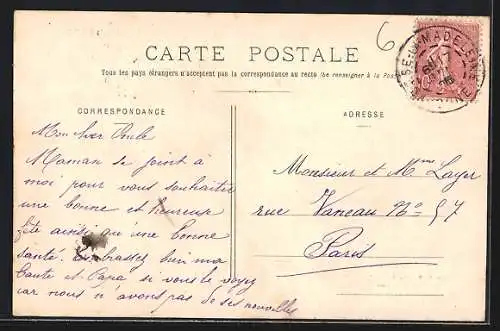 CARTE POSTALE
Tous les pays étrangers n'acceptent pas la correspondance au recto (Se renseigner à la Poste)
6
CORRESPONDANCE
Mon cher Oncle
Maman se joint à
moi pour vous souhaiter
une bonne et heureuse
fête ainsi qu'une bonne
santé. Embrassez bien ma
tante et Papa si vous le voyez
car nous n'avons pas de ses nouvelles
ADRESSE
Monsieur et Mme Layer
rue Vaneau No 57
Paris